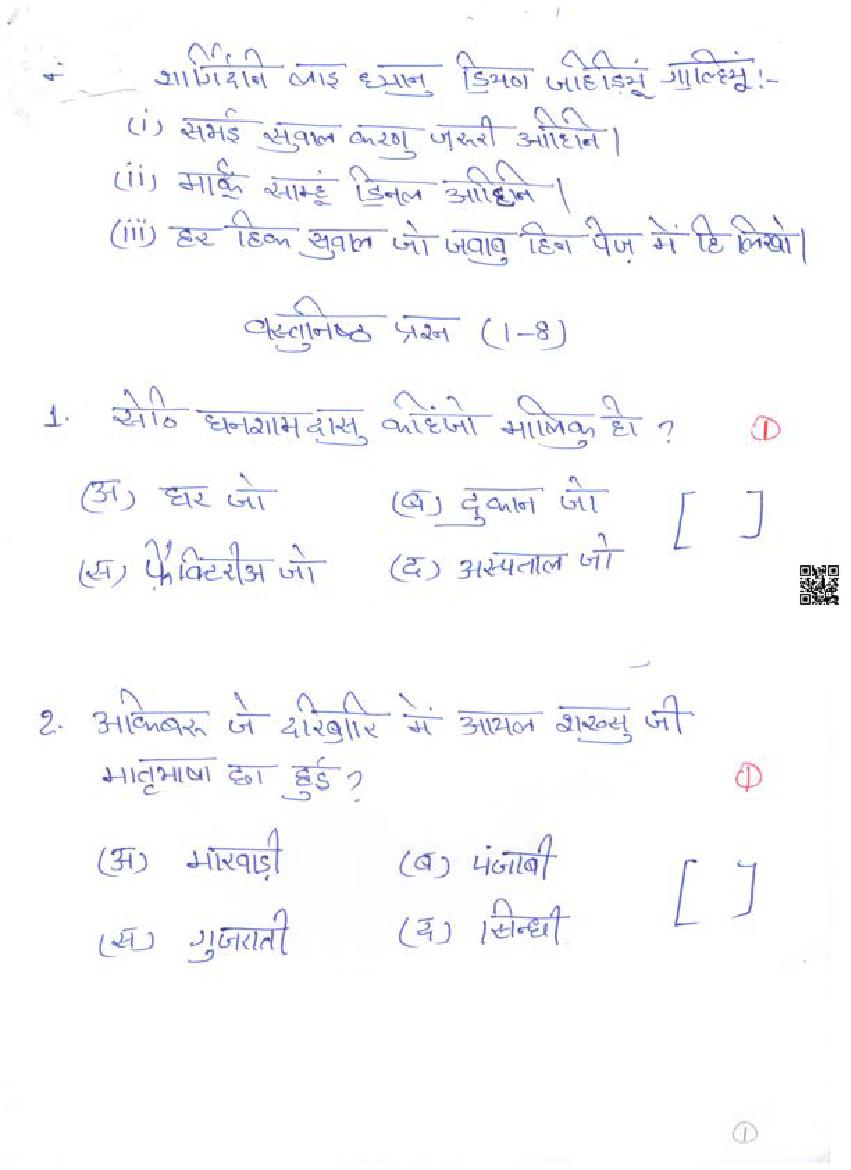 शार्गिदनि लाइ ध्यानु डियण जोहिड़ियूं गाल्हियूं:-
(i) सभई सुवाल करणु ज़रूरी आहिनि।
(ii) मार्कूं साम्हूं डिनल आहिनि।
(iii) हर हिक सुवाल जो जवाबु हिन पेज़ में हि लिखो।
वस्तुनिष्ठ प्रश्न (1-8)
1. सेठि घनशामदासु कहिंजो मालिकु हो ? ①
(अ) घर जो (ब) दुकान जो [ ]
(स) फ़ैक्टिरीअ जो (द) अस्पताल जो
2. अकिबरु जे दरिबारि में आयल शख्सु जी
मातृभाषा छा हुई? ①
(अ) मारवाड़ी (ब) पंजाबी [ ]
(स) गुजराती (द) सिन्धी
①